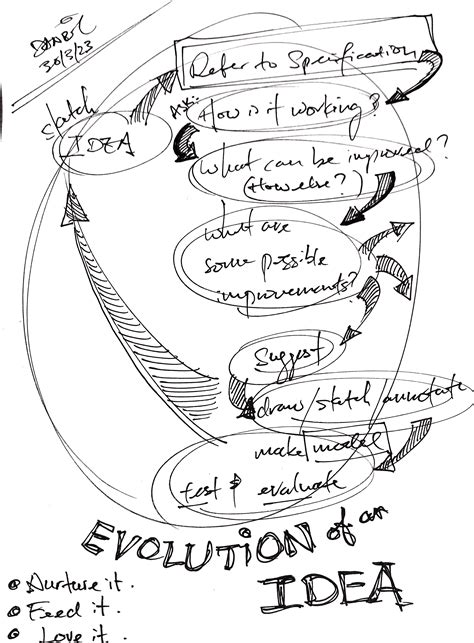 30/3/23
Sketch
IDEA
Refer to Specification
Ask:
How is it working?
What can be improved?
(How else?)
What are
some possible
improvements?
Suggest
draw/sketch/annotate
make/model
test & evaluate
EVOLUTION of an
IDEA
• Nurture it.
• Feed it.
• Love it.